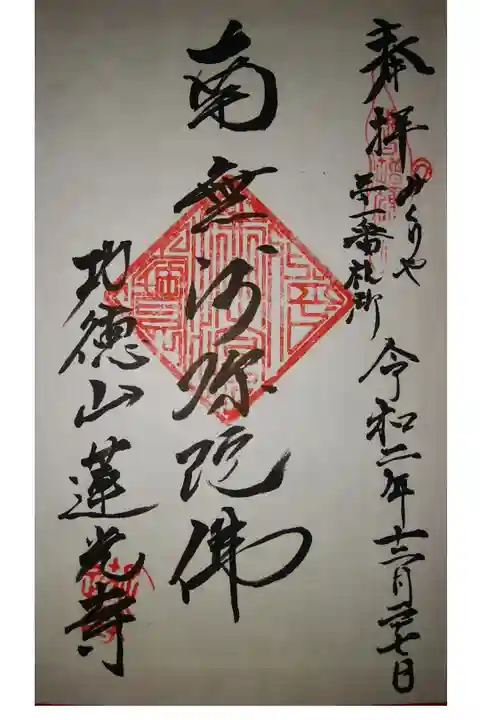 奉拝
みくりや
第一番札所
令和二年十二月廿七日
南無阿弥陀佛
功徳山蓮光寺